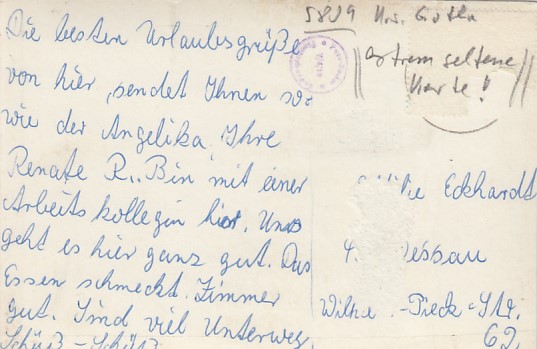 5809 Krs. Gotha
extrem seltene
Karte!
Die besten Urlaubsgrüße
von hier, sendet Ihnen so-
wie der Angelika, Ihre
Renate R.. Bin mit einer
Arbeitskollegin hier. Uns
geht es hier ganz gut. Das
Essen schmeckt. Zimmer
gut. Sind viel Unterwegs.
Schüß - Schüß
Eckhardt
4. Dessau
-Pieck-Str.
62